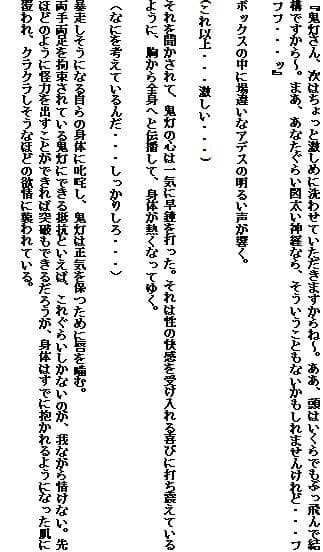 『鬼灯さん、次はちょっと激しめに洗わせていただきますからね～。ああ、頭はいくらでもぶっ飛んで結
構ですから～。まあ、あなたぐらい図太い神経なら、そういうこともないかもしれませんけれど・・・フ
フフ・・・ッ』
ボックスの中に場違いなアデスの明るい声が響く。
（これ以上・・・激しい・・・）
それを聞かされて、鬼灯の心は一気に早鐘を打った。それは性の快感を受け入れる喜びに打ち震えている
ように、胸から全身へと伝播して、身体が熱くなってゆく。
（なにを考えているんだ・・・しっかりしろ・・・）
暴走しそうになる自らの身体に叱咤し、鬼灯は正気を保つために唇を噛む。
両手両足を拘束されている鬼灯にできる抵抗といえば、これぐらいしかないのが、我ながら情けない。先
ほどのように怪力を出すことができれば突破もできるだろうが、身体はすでに抱かれるようになった肌に
覆われ、クラクラしそうなほどの欲情に襲われている。